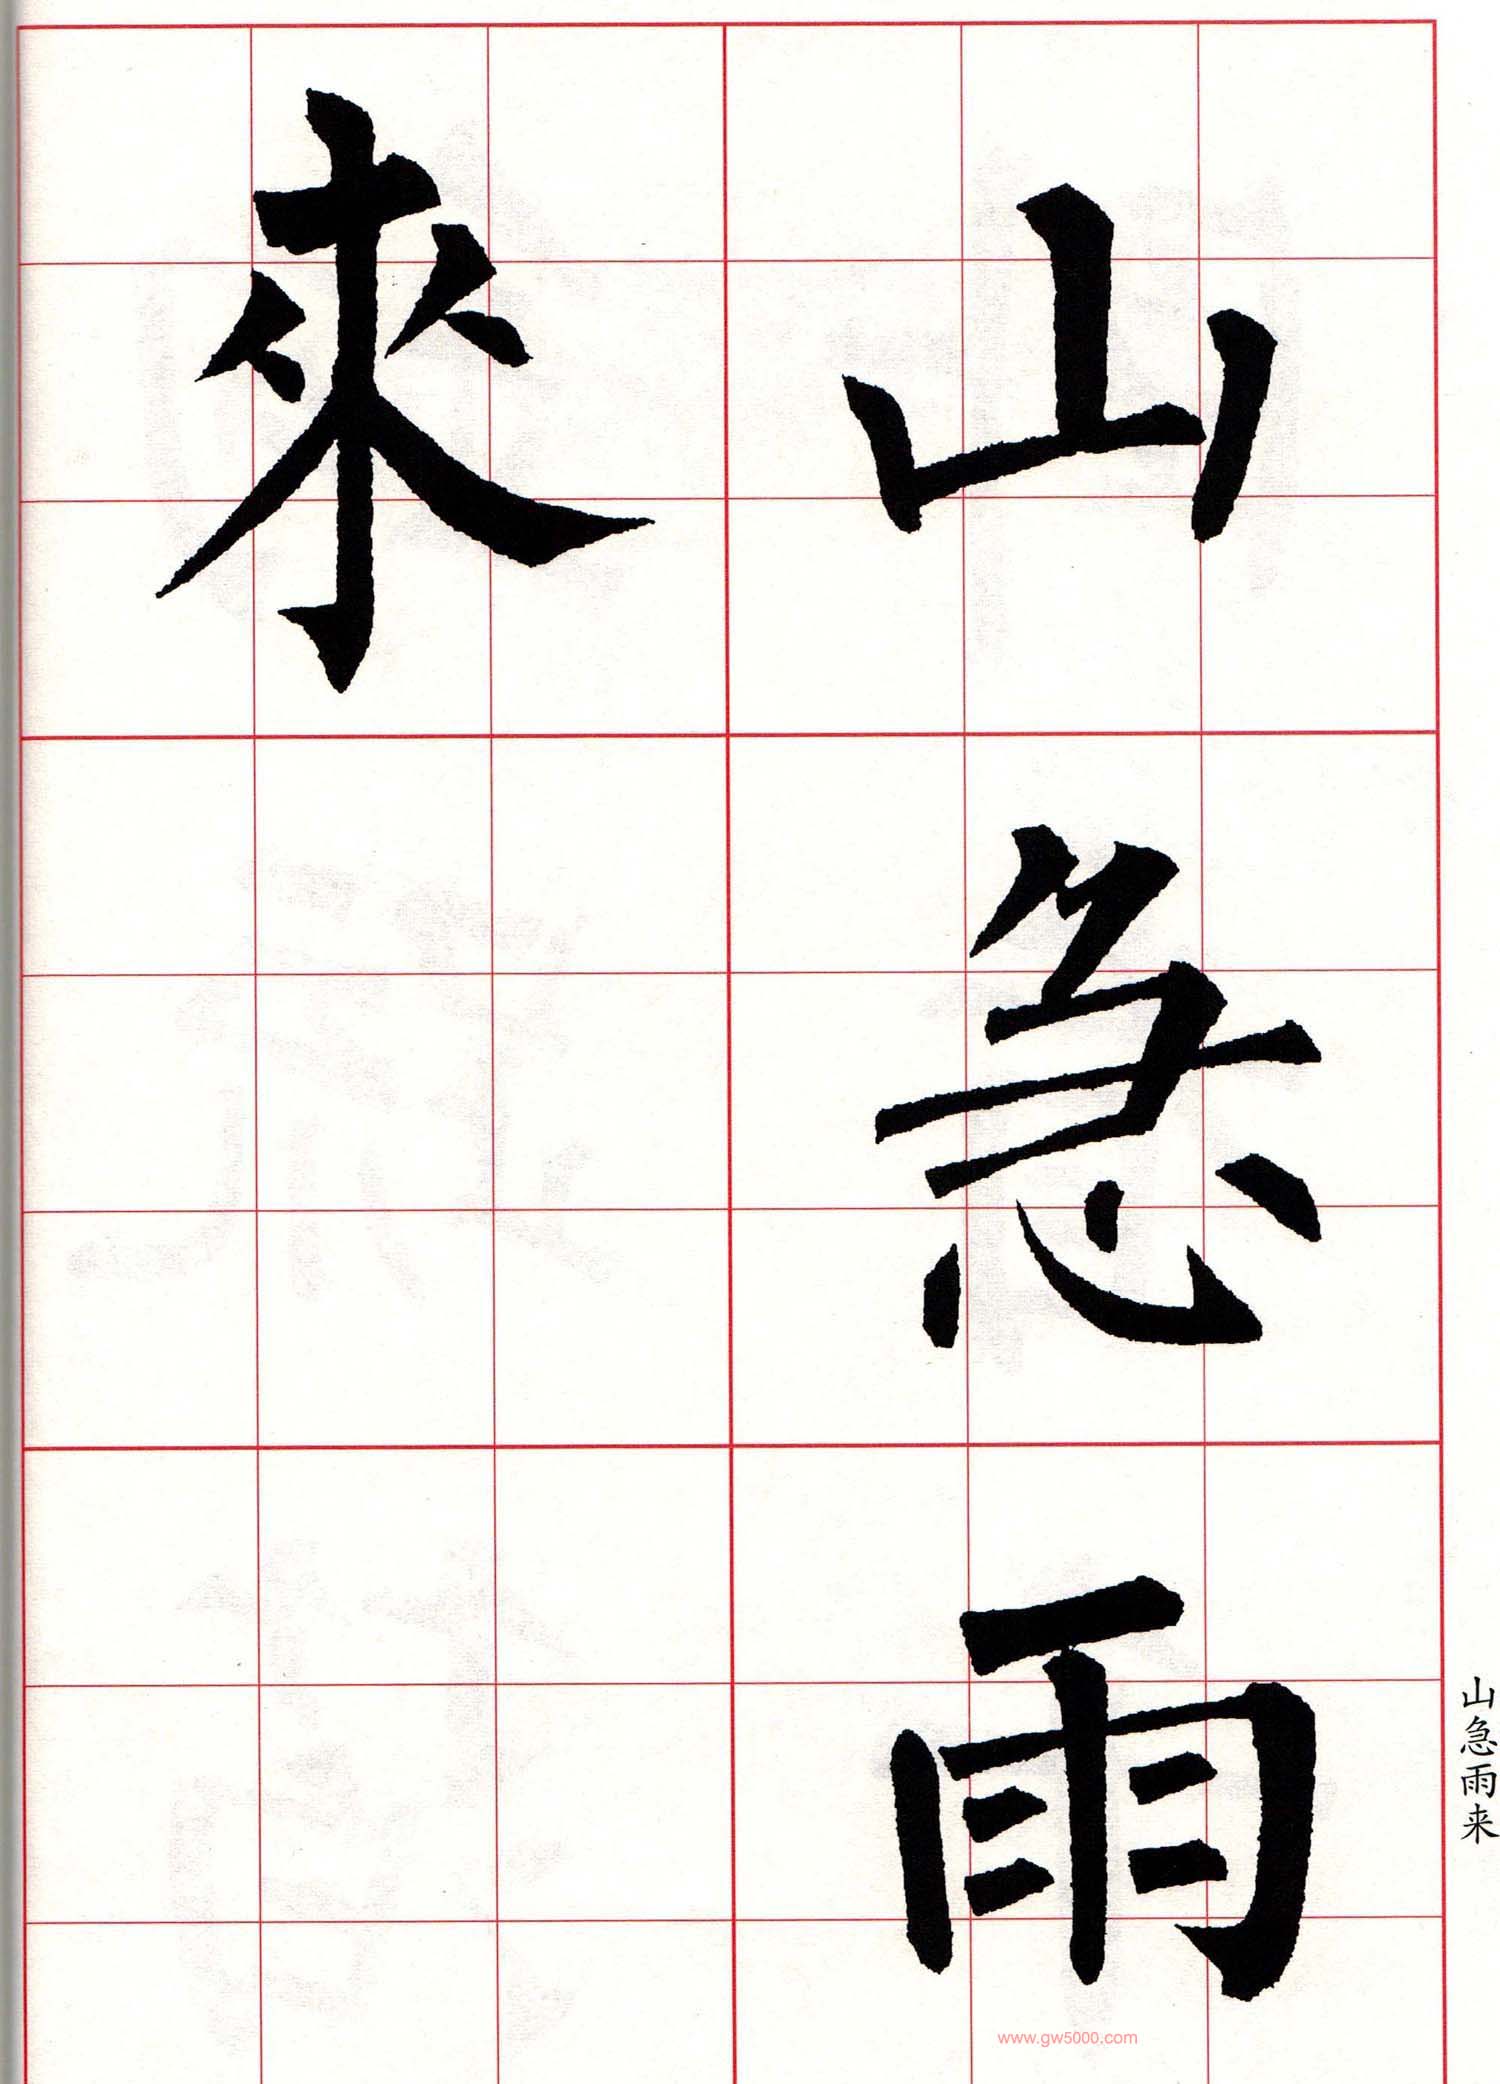 山急雨
來
山急雨来
www.gw5000.com